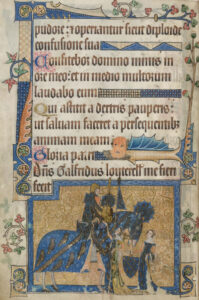 pudore: ⁊ operiantur sicut diploide
confusione sua
Confitebor domino nimis in
ore meo: et in medio multorum
laudabo eum
Qui astitit a dextris pauperis:
ut salvam faceret a persequentibus
animam meam
Gloria patri
Dns Galfridus louterell me fieri
fecit